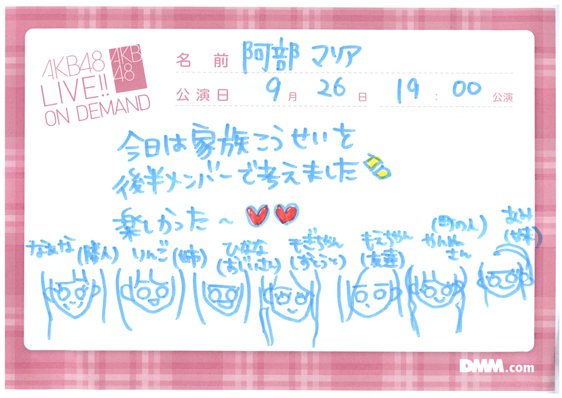 AKB48
LIVE!!
ON DEMAND
AKB
48
名 前 阿部 マリア
公演日 9月 26日 19:00 公演
今日は家族こうせいを
後半メンバーで考えました
楽しかった~
なぁな (隣人)
りんご (姉)
ひなな
(おじいさん)
もぎちゃん
もえちゃん
(友達)
(町の人)
さん
(妹)
DMM.com